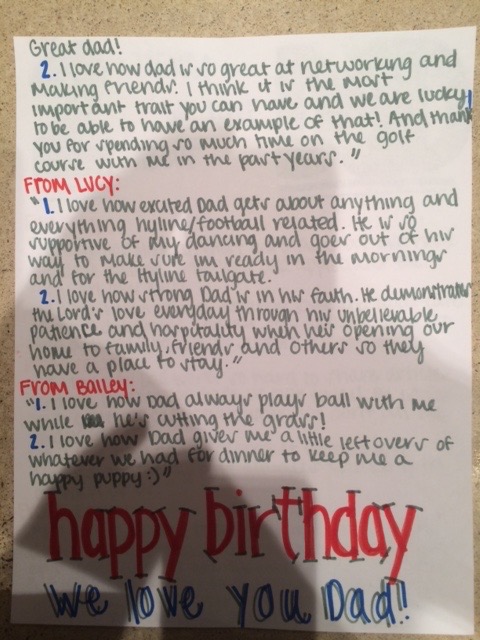 Great dad!
2. I love how dad is so great at networking and
making friends. I think it is the most
important trait you can have and we are lucky
to be able to have an example of that! And thank
you for spending so much time on the golf
course with me in the past years. "
FROM LUCY:
"1. I love how excited Dad gets about anything and
everything hyline/football related. He is so
supportive of my dancing and goes out of his
way to make sure im ready in the mornings
and for the Hyline tailgate.
2. I love how strong Dad is in his faith. He demonstrates
the Lord's love everyday through his unbelievable
patience and hospitality when he's opening our
home to family, friends and others so they
have a place to stay."
FROM BAILEY:
"1. I love how Dad always plays ball with me
while he's cutting the grass!
2. I love how Dad gives me a little leftovers of
whatever we had for dinner to keep me a
happy puppy :)"
happy birthday
We love you Dad!!